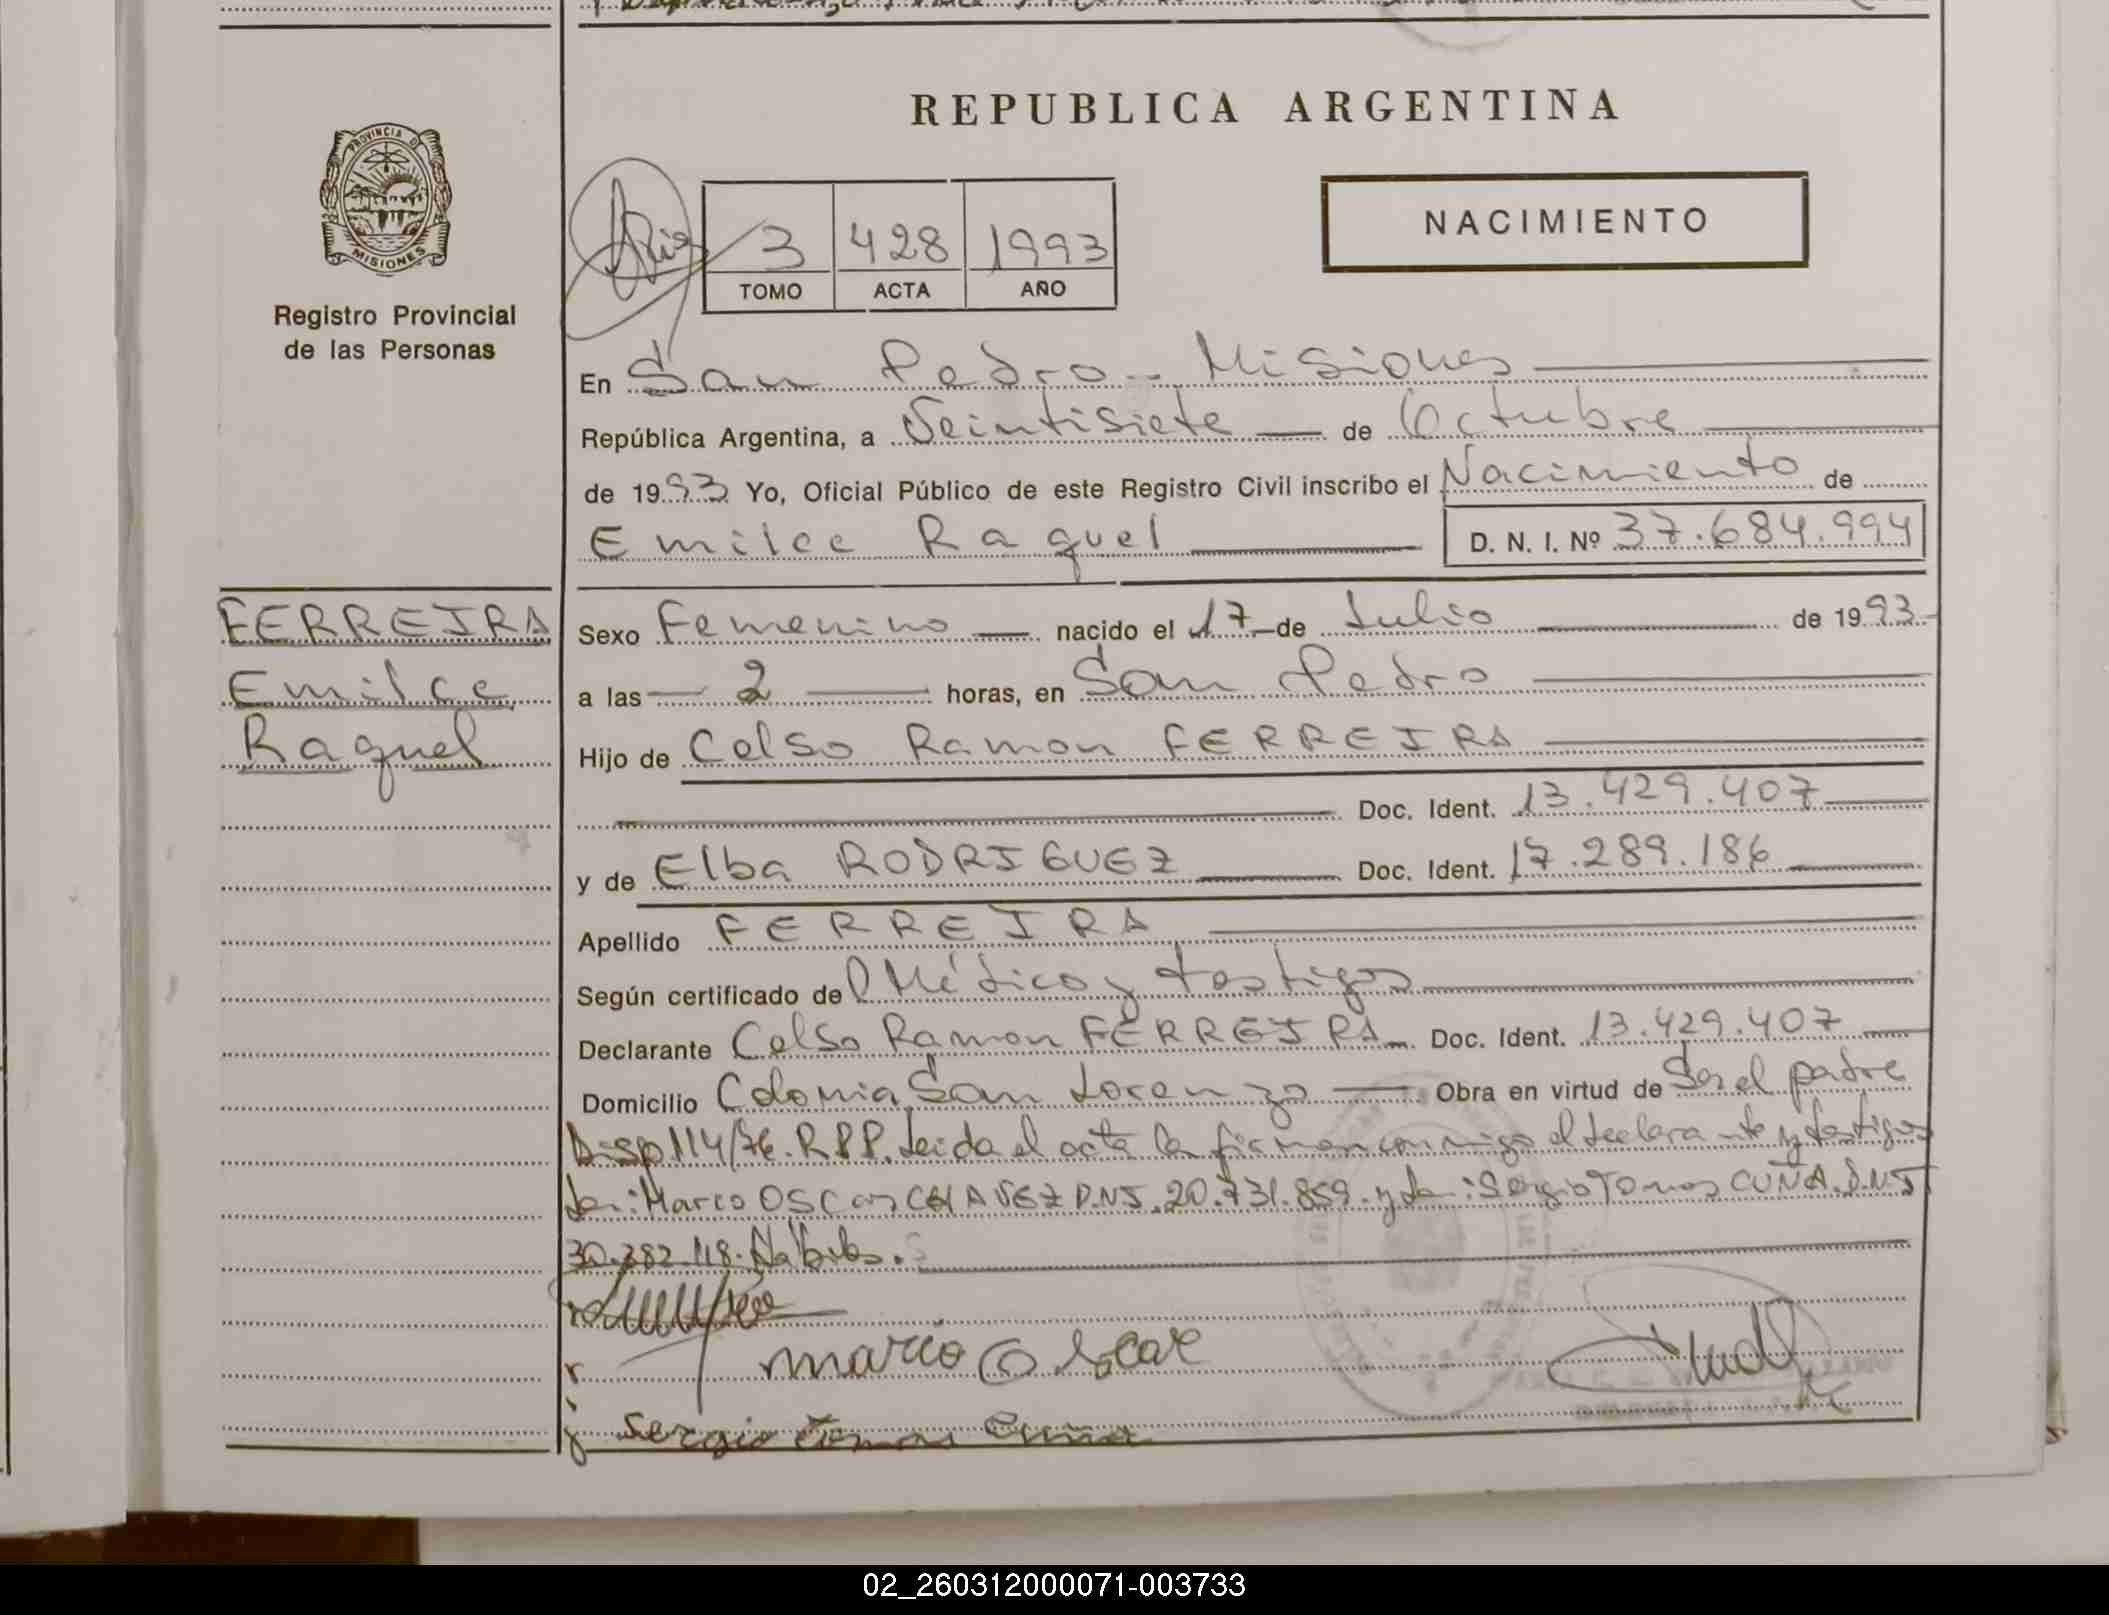 REPUBLICA ARGENTINA
PROVINCIA DE
MISIONES
Registro Provincial
de las Personas
3 428 1993
TOMO ACTA AÑO
NACIMIENTO
En San Pedro - Misiones
República Argentina, a Veintisiete de Octubre
de 1993 Yo, Oficial Público de este Registro Civil inscribo el Nacimiento de
Emilce Raquel D. N. I. Nº 37.684.994
FERREIRA
Emilce
Raquel
Sexo Femenino nacido el 17 de Julio de 1993
a las 2 horas, en San Pedro
Hijo de Celso Ramon FERREIRA
Doc. Ident. 13.429.407
y de Elba RODRIGUEZ Doc. Ident. 17.289.186
Apellido FERREIRA
Según certificado de Médico y testigos
Declarante Celso Ramon FERREIRA Doc. Ident. 13.429.407
Domicilio Colonia San Lorenzo Obra en virtud de Ser el padre
Disp 114/76. R.P.P. Leida el acta la firman conmigo el declarante y testigos
Marco OSCar CHAVEZ D.N.I. 20.731.859. y Sergio Tomas CUÑA. D.N.I
30.382.118.
marcio Oscar
Sergio Tomas Cuña
02_260312000071-003733